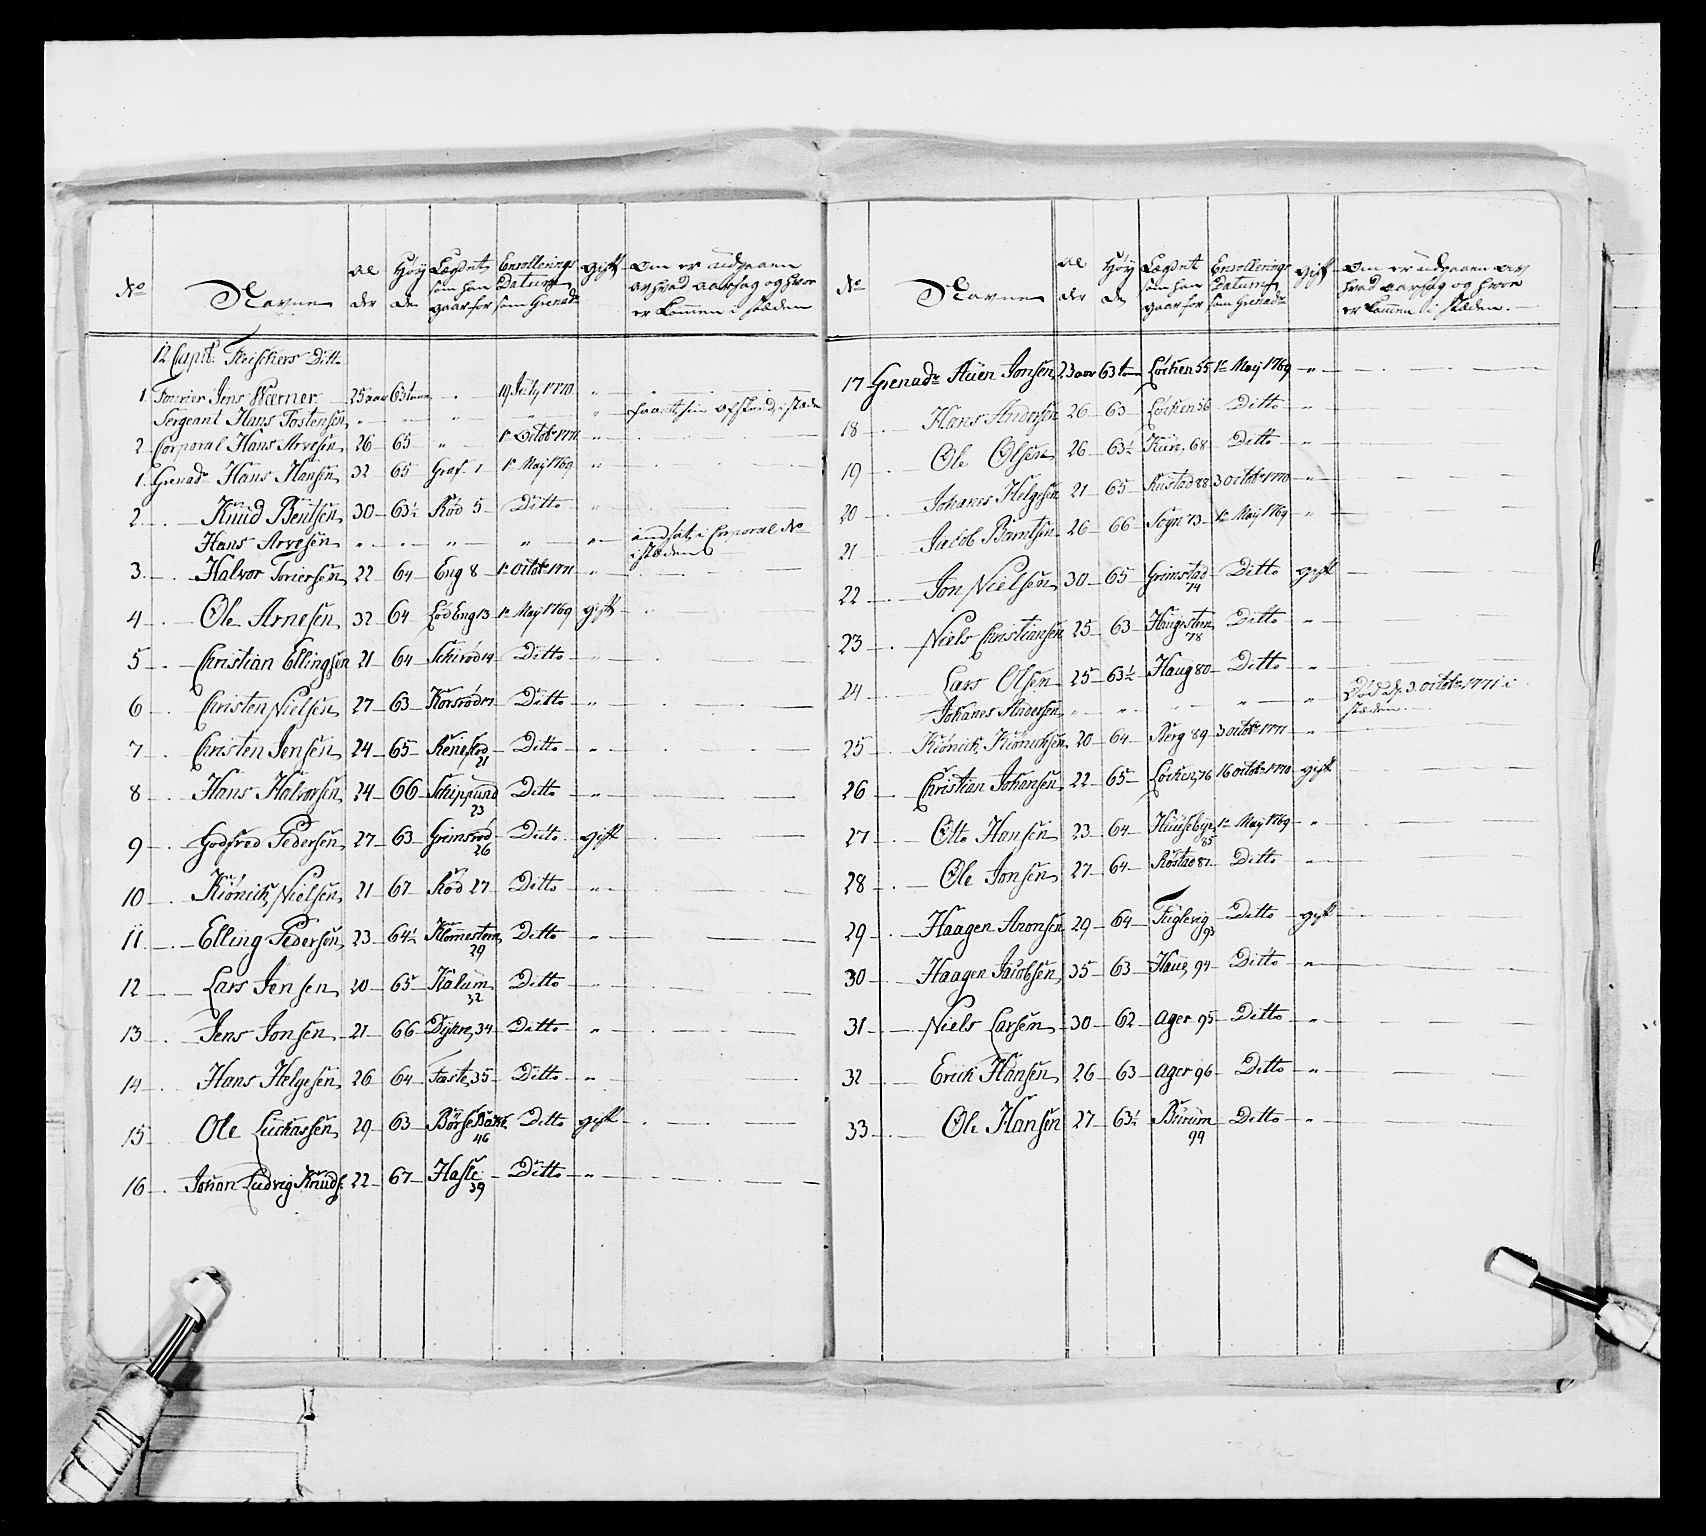 No Navne Al der Høy de Lægdet som han gaar for Enrollerings Datum som Grenadr gift Om er udgaaen av hvad aarsag og hvor er kommen i stæden
12 Capit: Fleischers Ditto
1. Fourier Jens Wærner 25 aar 63 tom " 19 July 1770 "
Sergeant Hans Tostensen " " " " "
2 Corporal Hans Arvesen 26 65 " 1e Octobr 1771 "
1. Grenadr Hans Hansen 32 65 Graf. 1 1e Maij 1769 "
2 Knud Bentsen 30 63½ Rød 5 Ditto "
Hans Arvesen " " " " " indsat i Corporal No
i stæden
3. Halvor Toriersen 22 64 Eng 8 1e Octobr 1771 "
4 Ole Arnesen 32 64 Lød Eng 13 1e Maij 1769 gift
5 Christian Ellingsen 21 64 Schirød 14 Ditto "
6 Christen Nielsen 27 63 Korsrød 17 Ditto "
7 Christen Jensen 24 65 Renefod 21 Ditto "
8 Hans Halvorsen 24 66 Schippund 23 Ditto "
9 Godfred Pedersen 27 63 Grimsrød 26 Ditto gift
10 Kiønich Nielsen 21 67 Rød 27 Ditto "
11 Elling Pedersen 23 64½ Klomestem 29 Ditto "
12 Lars Jensen 20 65 Kalum 32 Ditto "
13 Jens Jonsen 21 66 Dyhre 34 Ditto "
14 Hans Helgesen 26 64 Taste 35 Ditto "
15 Ole Luckassen 29 63 Børse Bake 46 Ditto gift
16 Johan Ludvig Knuds: 22 67 Hasle 39 Ditto "
No Navne Al der Høy de Lægdet som han gaar for Enrollerings Datum som Grenadr gift Om er udgaaen av hvad aarsag og hvor er kommen i stæden.
17 Grenadr Auen Jonsen 23 aar 63 tom Løchen 55 1e Maij 1769 "
18 Hans Andersen 26 63 Løchen 56 Ditto "
19 Ole Olsen 26 63½ Kure 68 Ditto "
20 Johanes Helgesen 21 65 Rustad 88 3 Octobr 1770 "
21 Jacob Barntsen 26 66 Sogn 73 1e Maij 1769 "
22 Jon Nielsen 30 65 Grimstad 74 Ditto gift
23 Niels Christiansen 25 63 Haugesteen 78 Ditto "
24 Lars Olsen 25 63½ Haug 80 Ditto "
Johanes Andersen " " " " " Død d. 3 Octobr 1771 i
stæden
25 Kiønich Kiønichsen 20 64 Berg 89 3 Octobr 1771 "
26 Christian Johansen 22 65 Løchen 76 16 Octobr 1770 gift
27 Otto Hansen 23 64 Huusebye 85 1e Maij 1769 "
28 Ole Jonsen 27 64 Rostad 87 Ditto "
29 Haagen Aronsen 29 64 Fuglevig 93 Ditto gift
30 Haagen Jacobsen 35 63 Haue 94 Ditto "
31 Niels Larsen 30 62 Ager 95 Ditto "
32 Erich Hansen 26 63 Ager 96 Ditto "
33 Ole Hansen 27 63½ Burum 99 Ditto "